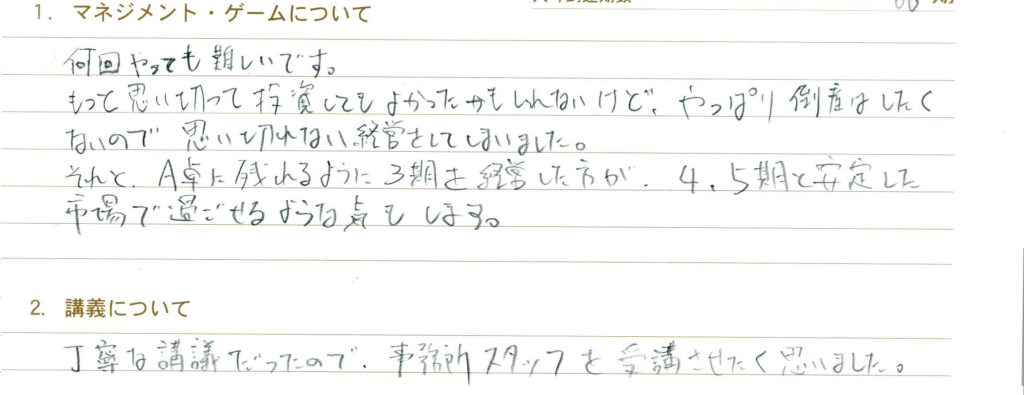 1. マネジメント・ゲームについて
何回やっても難しいです。
もっと思い切って投資してもよかったかもしれないけど、やっぱり倒産はしたく
ないので思い切れない経営をしてしまいました。
それと、A卓に残れるように3期を経営した方が、4、5期と安定した
市場で過ごせるような気もします。
2. 講義について
丁寧な講議だったので、事務所スタッフを受講させたく思いました。